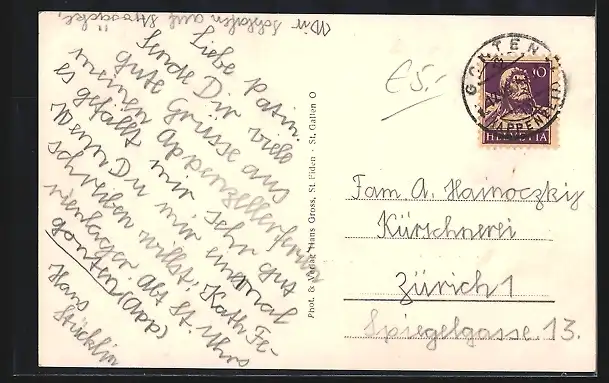 Wir schlafen auf Strosäcke.
Liebe Patin
Sende Dir viele
gute Grüsse aus
meinen Appenzellerferien
es gefällt mir sehr gut
Wenn Du mir einmal
schreiben willst: Kath. Fe-
rienlager Abt St. Urs
Gonten (App)
Hans
Stücklin
Phot. & Verlag Hans Gross, St. Fiden - St. Gallen O
£5.-
GONTEN
(APPENZELL)
10
HELVETIA
Fam. A. Hainoczkiy
Kürschnerei
Zürich 1
Spiegelgasse 13.